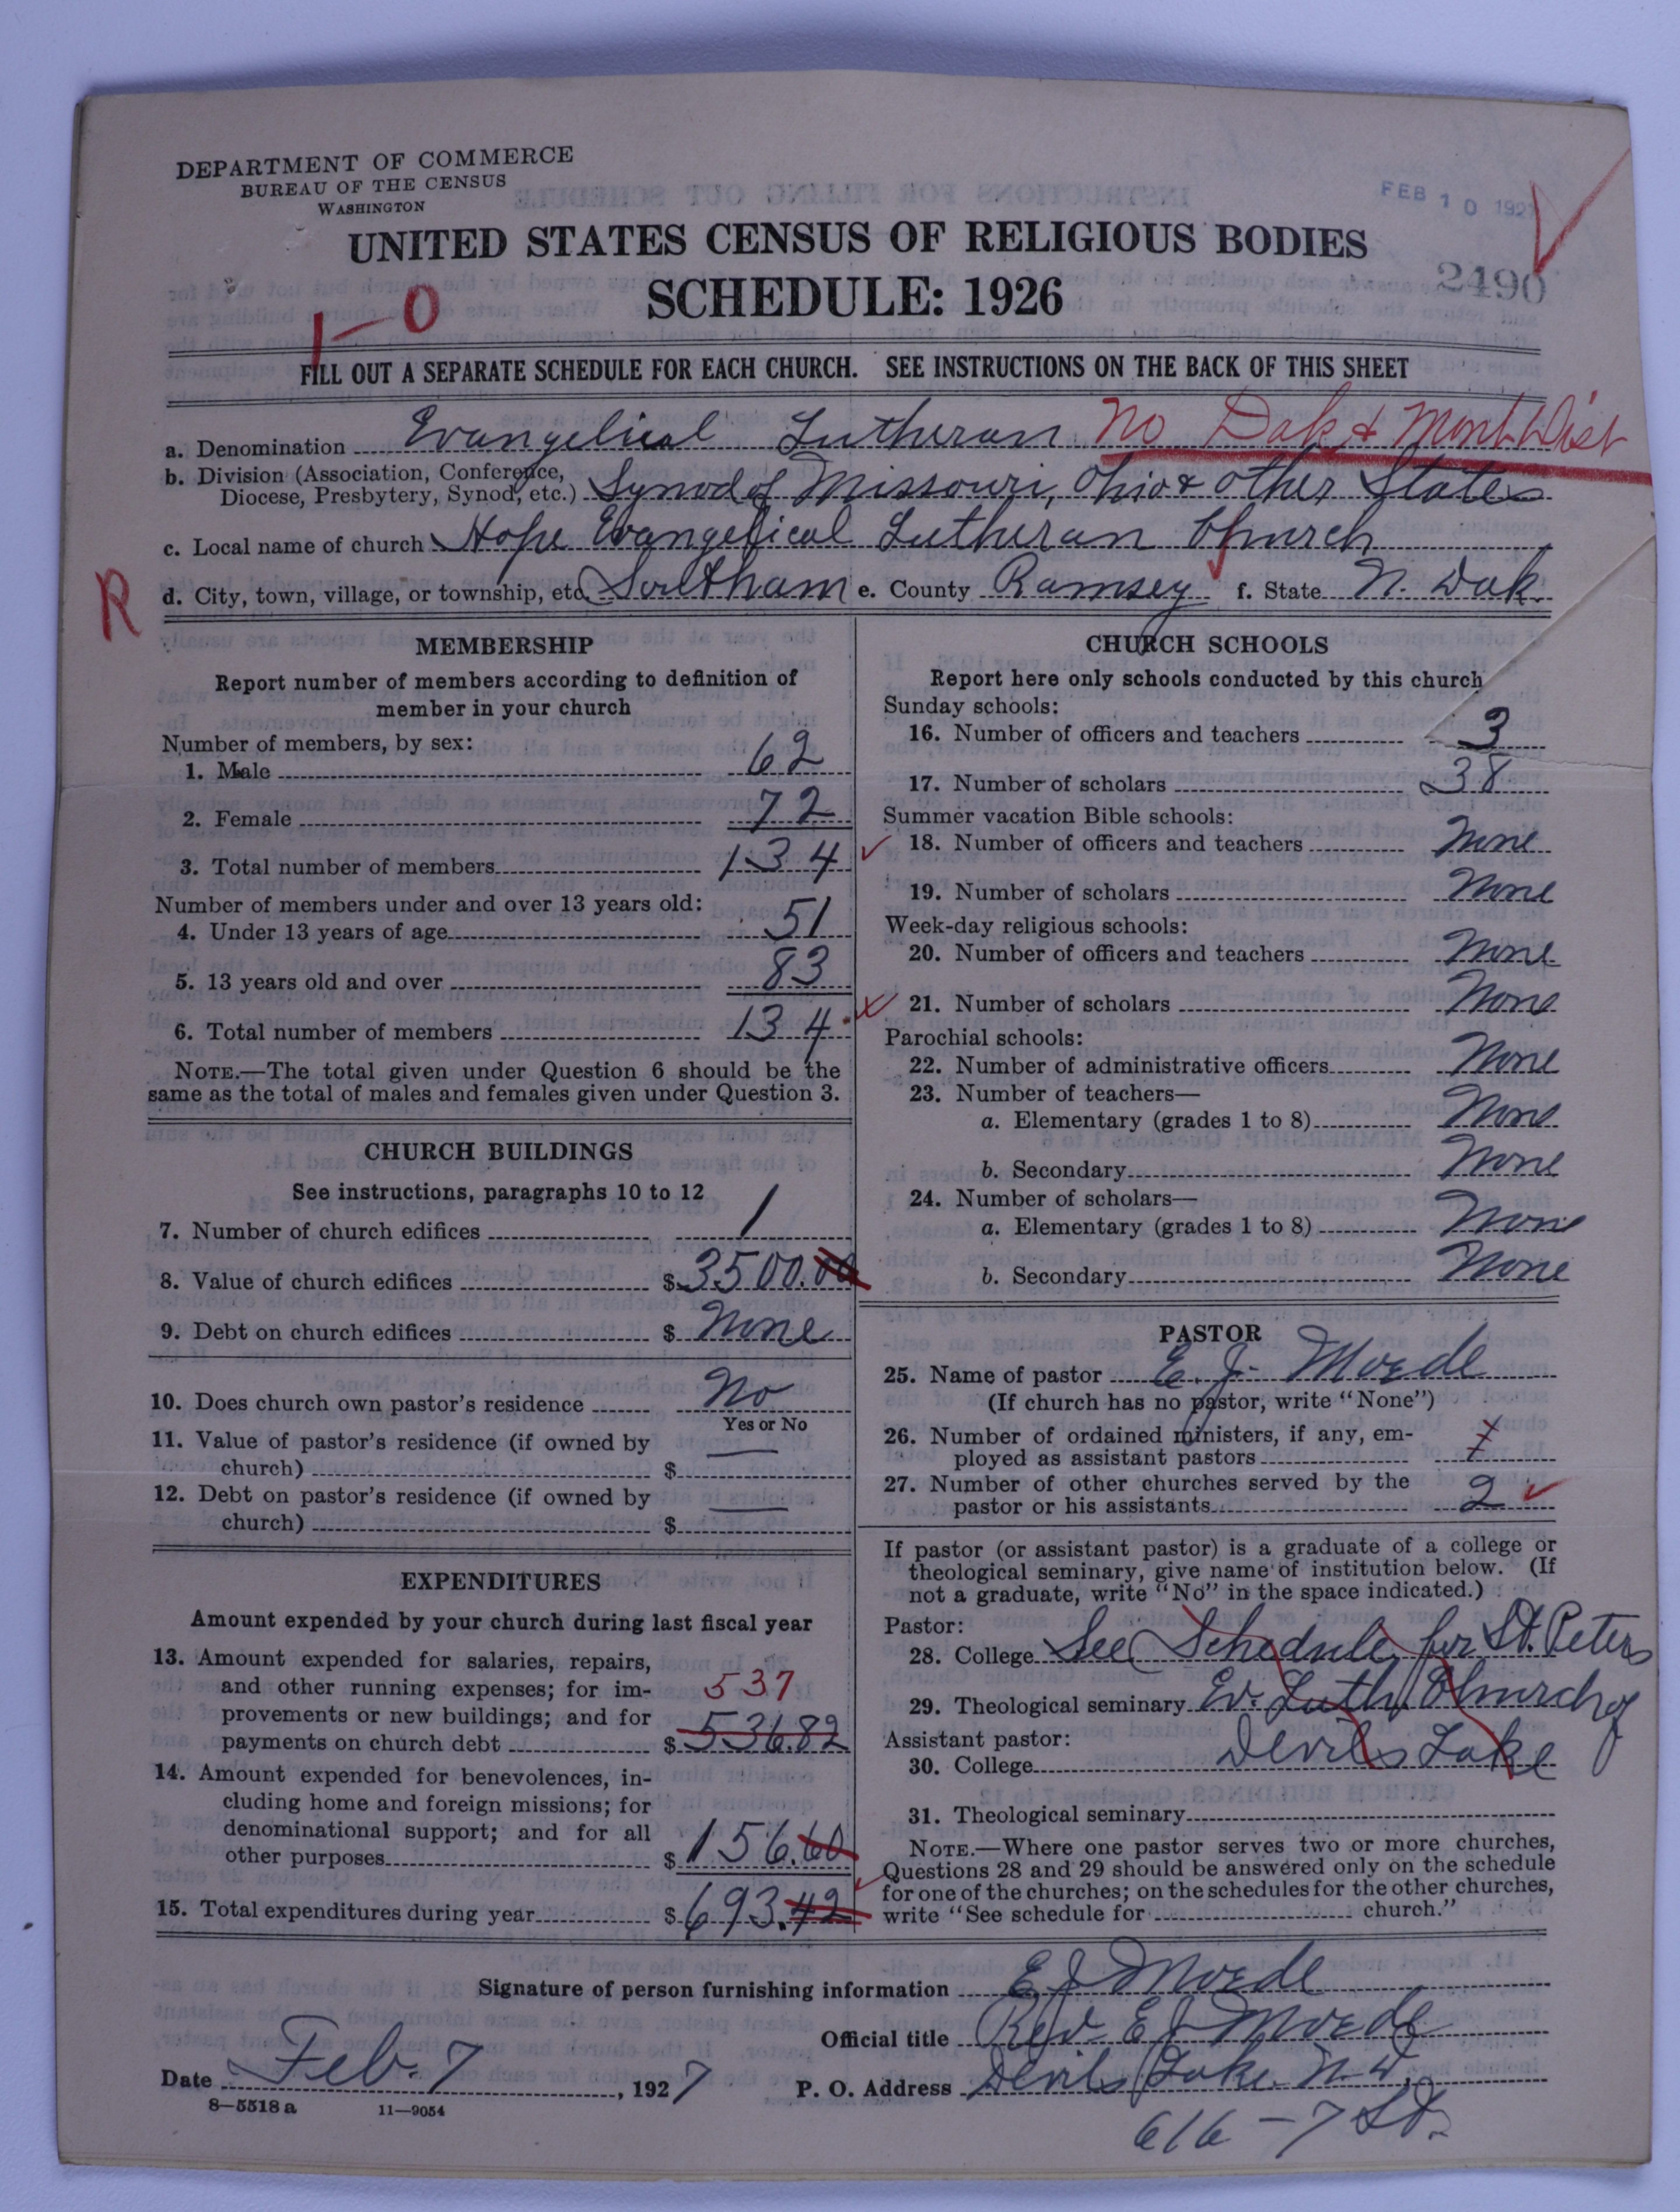 DEPARTMENT OF COMMERCE
BUREAU OF THE CENSUS
WASHINGTON
FEB 10 1927
UNITED STATES CENSUS OF RELIGIOUS BODIES
SCHEDULE: 1926
2490
1-0
FILL OUT A SEPARATE SCHEDULE FOR EACH CHURCH. SEE INSTRUCTIONS ON THE BACK OF THIS SHEET
a. Denomination Evangelical Lutheran No Dak & Mont Dist
b. Division (Association, Conference,
Diocese, Presbytery, Synod, etc.) Synod of Missouri, Ohio & Other States
c. Local name of church Hope Evangelical Lutheran Church
R
d. City, town, village, or township, etc. Southam e. County Ramsey f. State N. Dak.
MEMBERSHIP
Report number of members according to definition of
member in your church
Number of members, by sex:
1. Male 62
2. Female 72
3. Total number of members 134
Number of members under and over 13 years old:
4. Under 13 years of age 51
5. 13 years old and over 83
6. Total number of members 134
NOTE.—The total given under Question 6 should be the
same as the total of males and females given under Question 3.
CHURCH BUILDINGS
See instructions, paragraphs 10 to 12
7. Number of church edifices 1
8. Value of church edifices $3500.00
9. Debt on church edifices $ None
10. Does church own pastor's residence No
Yes or No
11. Value of pastor's residence (if owned by
church) $ —
12. Debt on pastor's residence (if owned by
church) $ —
EXPENDITURES
Amount expended by your church during last fiscal year
13. Amount expended for salaries, repairs,
and other running expenses; for im-
provements or new buildings; and for
payments on church debt $ 536.82
537
14. Amount expended for benevolences, in-
cluding home and foreign missions; for
denominational support; and for all
other purposes $ 156.60
15. Total expenditures during year $ 693.42
CHURCH SCHOOLS
Report here only schools conducted by this church
Sunday schools:
16. Number of officers and teachers 3
17. Number of scholars 38
Summer vacation Bible schools:
18. Number of officers and teachers None
19. Number of scholars None
Week-day religious schools:
20. Number of officers and teachers None
21. Number of scholars None
Parochial schools:
22. Number of administrative officers None
23. Number of teachers—
a. Elementary (grades 1 to 8) None
b. Secondary None
24. Number of scholars—
a. Elementary (grades 1 to 8) None
b. Secondary None
PASTOR
25. Name of pastor E. J. Moede
(If church has no pastor, write "None")
26. Number of ordained ministers, if any, em-
ployed as assistant pastors
27. Number of other churches served by the
pastor or his assistants 2
If pastor (or assistant pastor) is a graduate of a college or
theological seminary, give name of institution below. (If
not a graduate, write "No" in the space indicated.)
Pastor:
28. College See Schedule for St. Peters
29. Theological seminary Ev. Luth. Church of
Assistant pastor:
30. College Devils Lake
31. Theological seminary
NOTE.—Where one pastor serves two or more churches,
Questions 28 and 29 should be answered only on the schedule
for one of the churches; on the schedules for the other churches,
write "See schedule for church."
Signature of person furnishing information E J Moede
Official title Rev. E J Moede
Date Feb. 7, 1927 P. O. Address Devils Lake. N. D.
8—5518 a 11—9054
616 – 7 St.